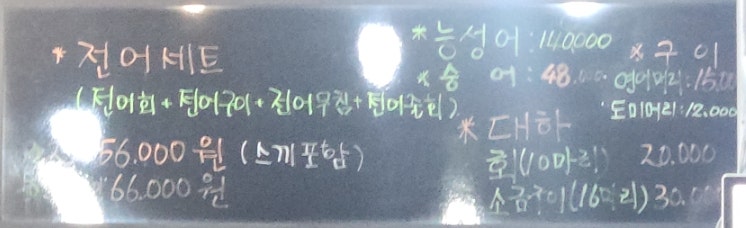 * 전어세트
(전어회+전어구이+전어무침+전어초회)
56.000원 (스끼포함)
66.000원
* 능성어:140,000
* 숭 어: 48.000
* 대하
회(10마리) 20.000
소금구이(16마리) 30.000
* 구 이
연어머리:15.000
도미머리:12.000